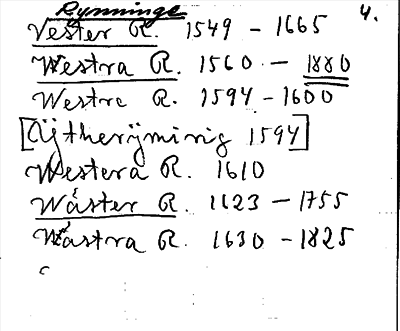 Rynninge 4.
Vester R. 1549 - 1665
Westra R. 1560 - 1880
Westre R. 1594 - 1600
[Ÿtherÿminig 1594]
Westera R. 1610
Wäster R. 1623 - 1755
Wästra R. 1630 - 1825